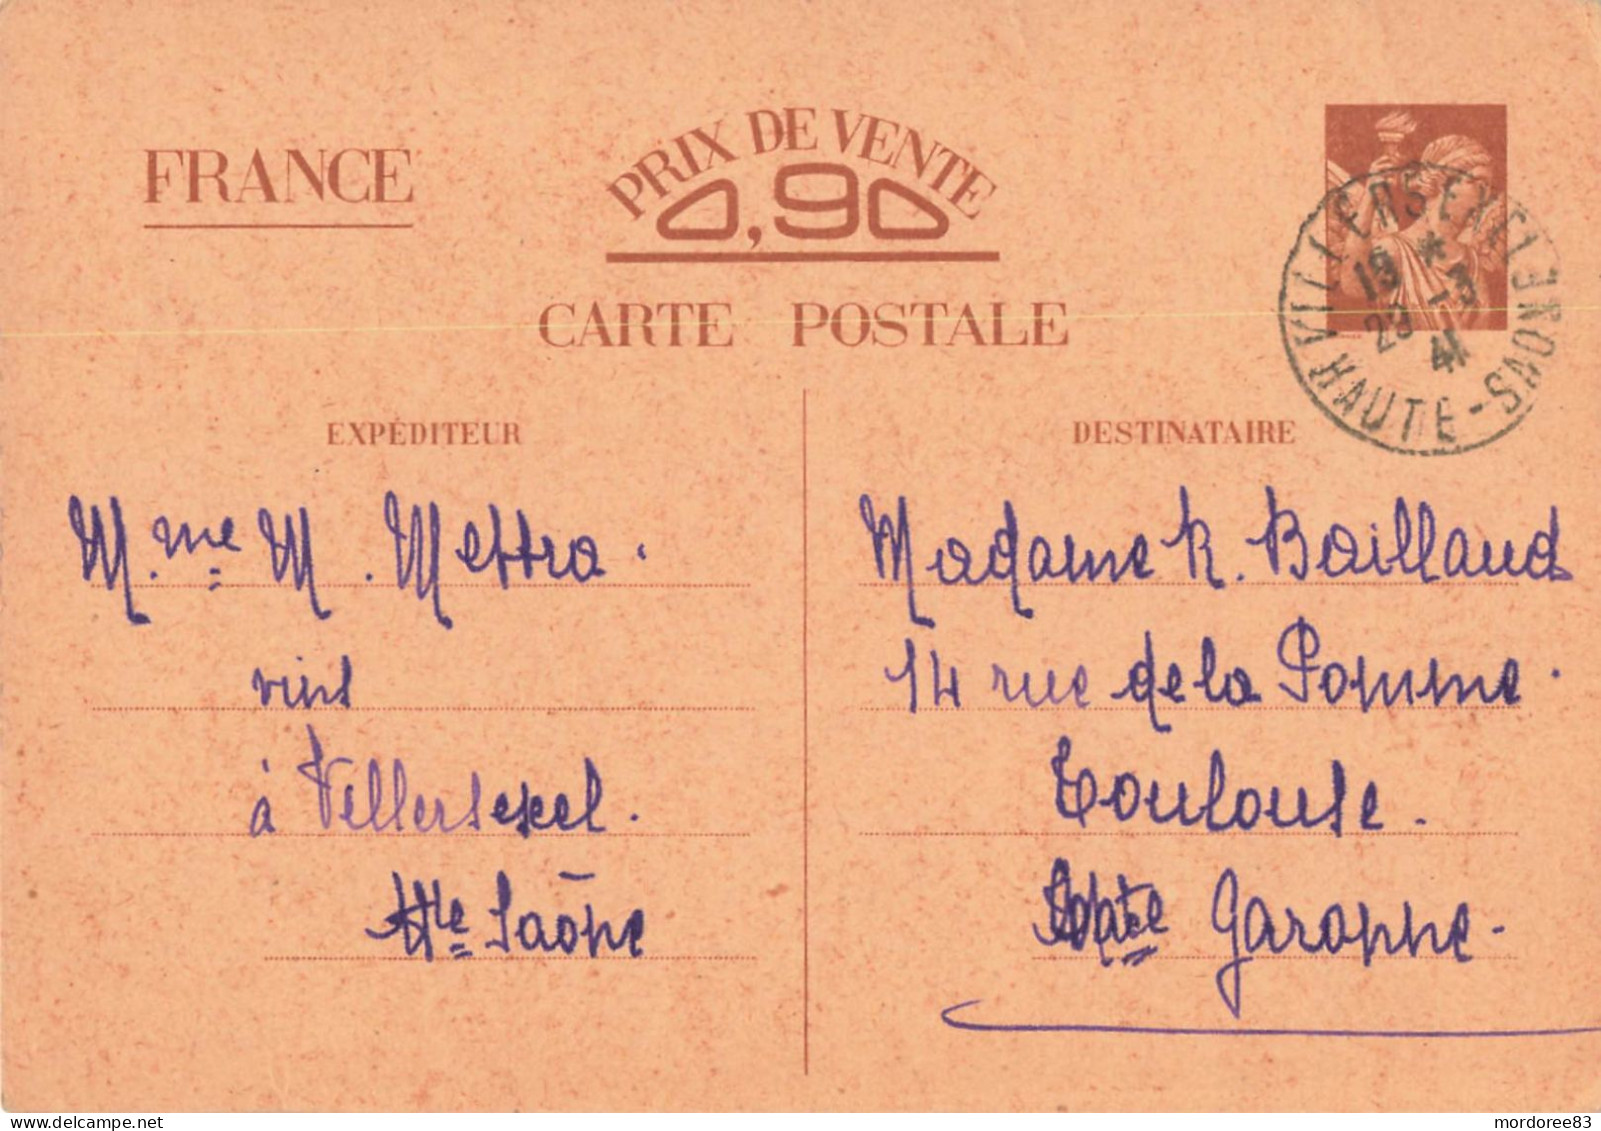 FRANCE
PRIX DE VENTE
0,90
CARTE POSTALE
VILLERSEXEL
19 *
29 -3
41
HAUTE-SAONE
EXPÉDITEUR
M.me M. Mettra.
vins
à Villersexel.
Hte Saône
DESTINATAIRE
Madame R. Baillaud
14 rue de la Pomme.
Toulouse.
Hte Garonne.
mordoree83